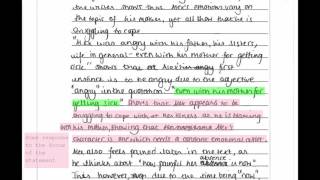 the writer shows that Alex's emotions vary on
the topic of his mother, yet all show that he is
struggling to cope.
"Alex was angry with his father, his sisters,
life in general - even with his mother for getting
sick" shows that Alex's first
instinct is to be angry due to the adjective
"angry" in the quotation. "even with his mother for
getting sick" shows that Alex appears to be
struggling to cope with her illness as he is blaming
his mother, showing that
character is one which needs a
Alex also feels pained later in the text, as
he thinks about "how painful her absence is now"
This however, may be due to the time being "now",
Some response
to the focus
of the
statement